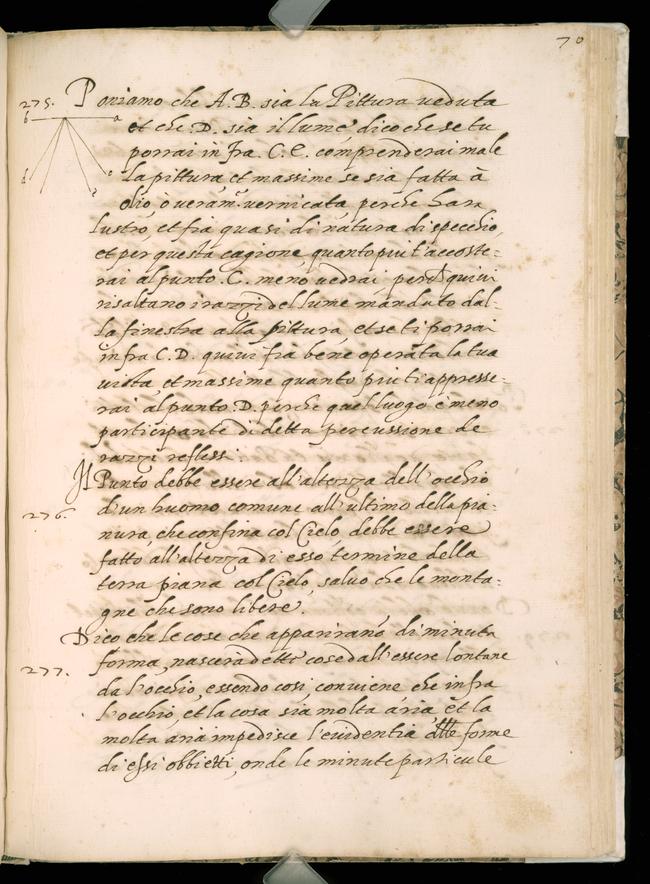 70
275. Poniamo che A.B. sia la Pittura veduta
b a
et che .D. sia il lume dico che se tu
porrai in fra. C. E. comprenderai male
d c
la pittura et massime se sia fatta à
e
olio ò veram. vernicata perche hara
lustro, et fia quasi di natura di specchio,
et per questa cagione quanto piu t'accoste=
rai al punto .C. meno vedrai perche quivi
risaltano i razzi del lume mandato dal=
la finestra alla pittura, et se ti porrai
infra C.D. quivi fia bene operata la tua
vista, et massime quanto piu ti appresse=
rai al punto .D. perche quel luogo è meno
participante di detta percussione de
razzi reflessi.
Il Punto debbe essere all'altezza dell'occhio
d'un huomo comune all'ultimo della pia=
276. nura, che confina col Cielo, debbe essere
fatto all'altezza di esso termine della
terra piana col Cielo, salvo che le monta=
gne che sono libere.
Dico che le cose che appariranō di minuta
forma, nascerà dette cose dall'essere lontane
277. da l'occhio, essendo cosi, conviene che infra
l'occhio, et la cosa sia molta aria, et la
molta aria impedisce l'euidentia delle forme
di essi obbietti, onde le minute particule